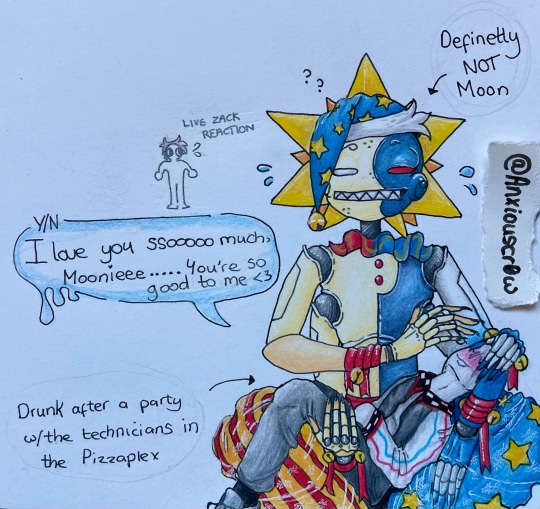 Definetly
NOT
Moon
? ?
LIVE ZACK
REACTION
?
Y/N
I love you SSooooo much,
Moonieee ..... You're so
good to me <3
@Anxiouscr0w
Drunk after a party
w/the technicians in
the Pizzaplex